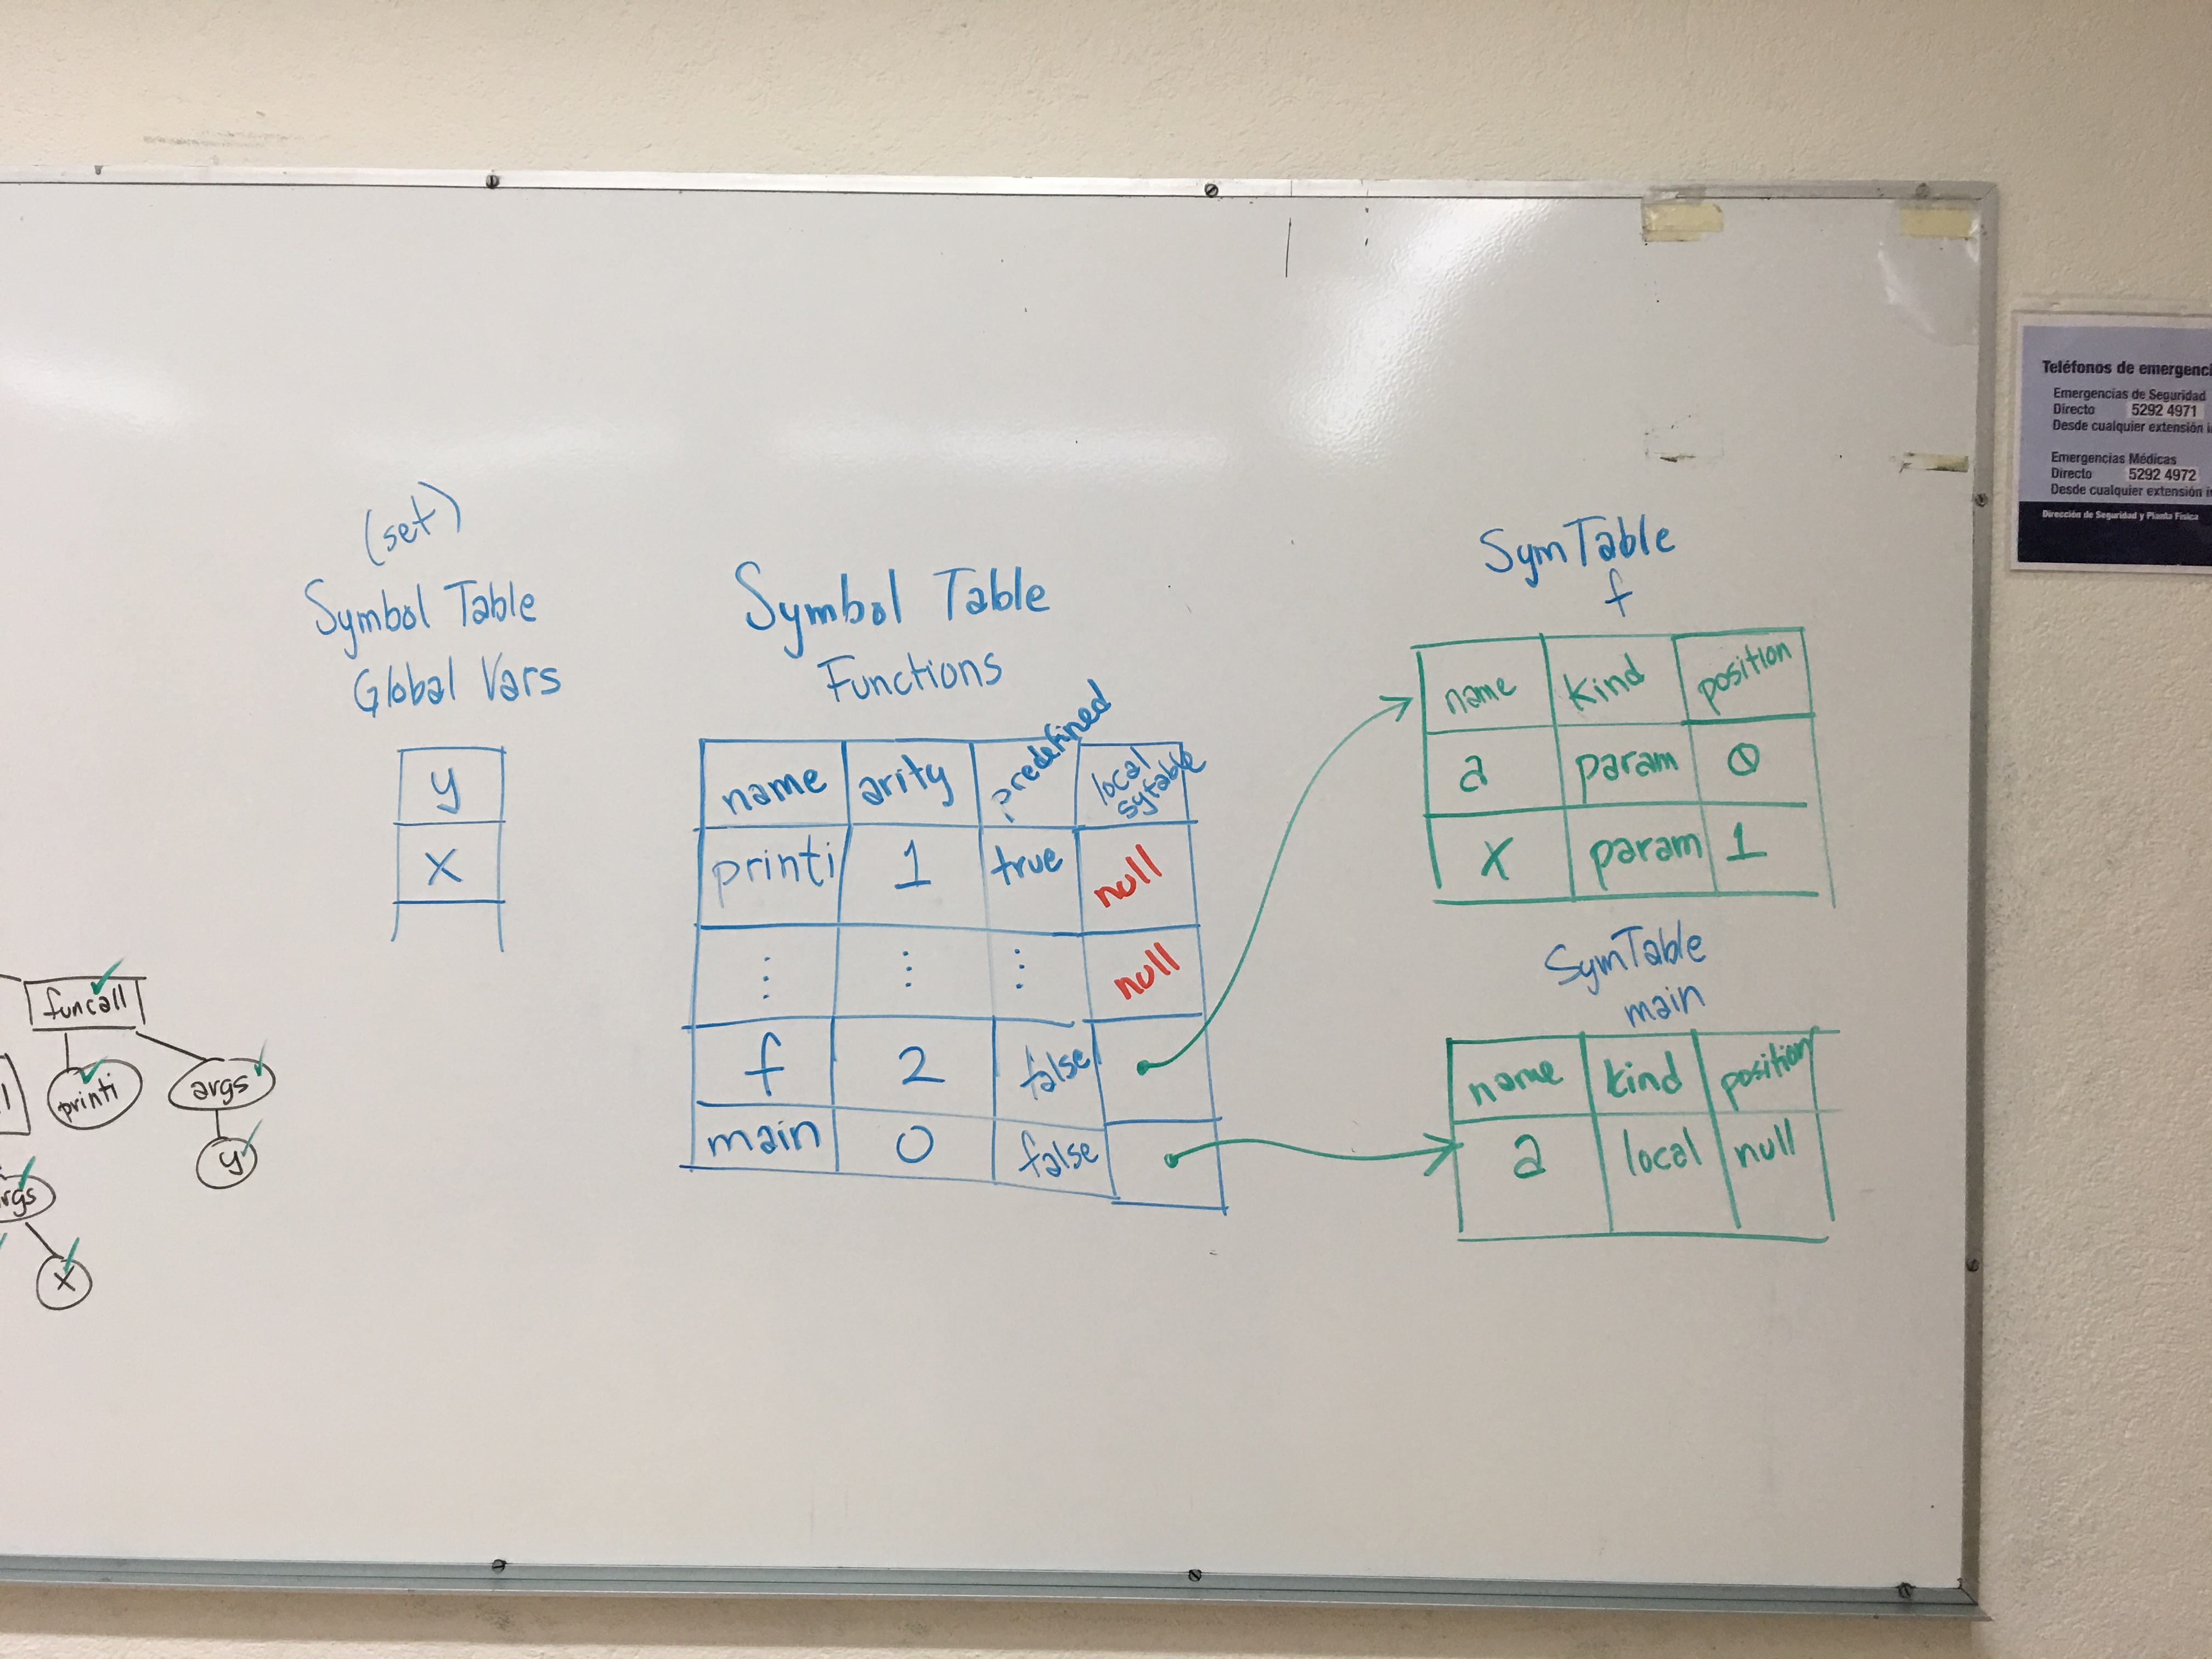 (set)
Symbol Table
Global Vars
y
x
Symbol Table
Functions
name arity predefined? local sytable
printi 1 true null
⋮ ⋮ ⋮ null
f 2 false
main 0 false
SymTable
f
name kind position
a param 0
x param 1
SymTable
main
name kind position
a local null
funcall
printi args
y
x
Teléfonos de
Emergencias de Seguridad
Directo 5292 4971
Desde cualquier extensión
Emergencias Médicas
Directo 5292 4972
Desde cualquier extensión
Dirección de Seguridad y Planta Física